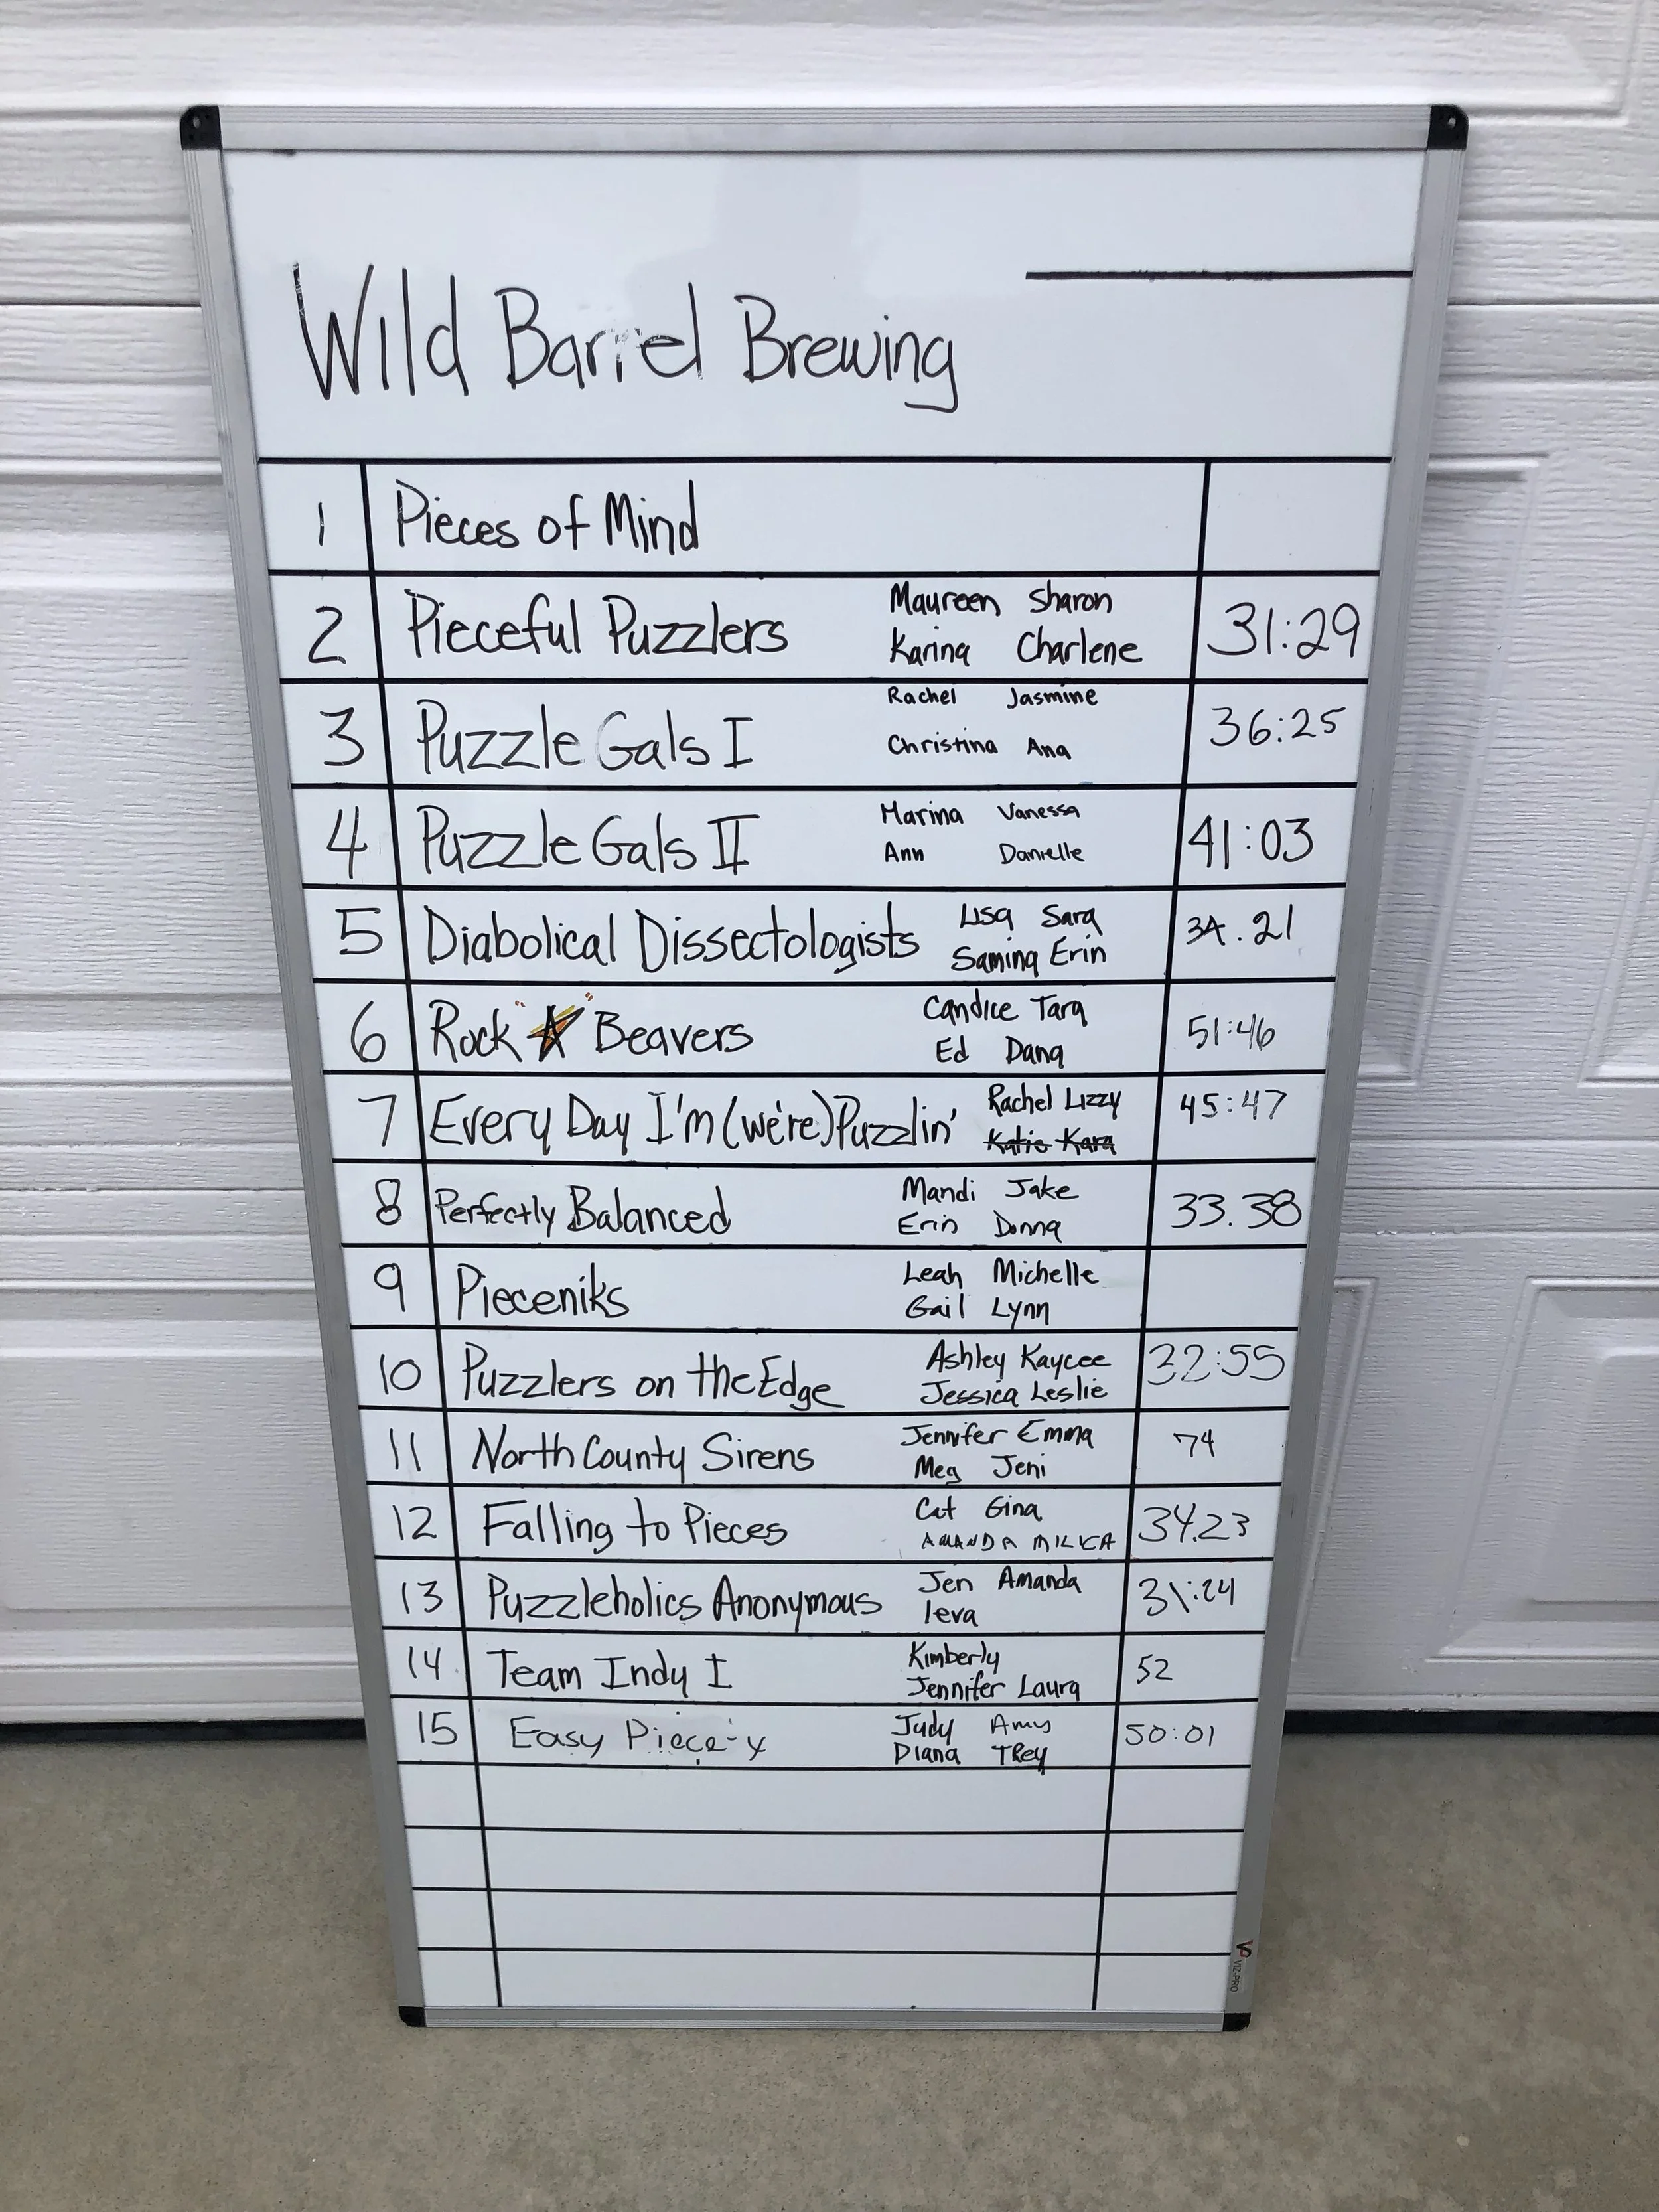 Wild Barrel Brewing
1 Pieces of Mind
2 Pieceful Puzzlers Maureen Sharon 31:29
Karina Charlene
3 Puzzle Gals I Rachel Jasmine 36:25
Christina Ana
4 Puzzle Gals II Marina Vanessa 41:03
Ann Danielle
5 Diabolical Dissectologists Lisa Sara 34.21
Samina Erin
6 Rock Beavers Candice Tara 51:46
Ed Dana
7 Every Day I'm (we're) Puzzlin' Rachel Lizzy 45:47
Katie Kara
8 Perfectly Balanced Mandi Jake 33.38
Erin Donna
9 Pieceniks Leah Michelle
Gail Lynn
10 Puzzlers on the Edge Ashley Kaycee 32:55
Jessica Leslie
11 North County Sirens Jennifer Emma 74
Meg Jeni
12 Falling to Pieces Cat Gina 34.23
AMANDA MILICA
13 Puzzleholics Anonymous Jen Amanda 31:24
Ieva
14 Team Indy I Kimberly 52
Jennifer Laura
15 Easy Piece-y Judy Amy 50:01
Diana Trey
VIZ-PRO